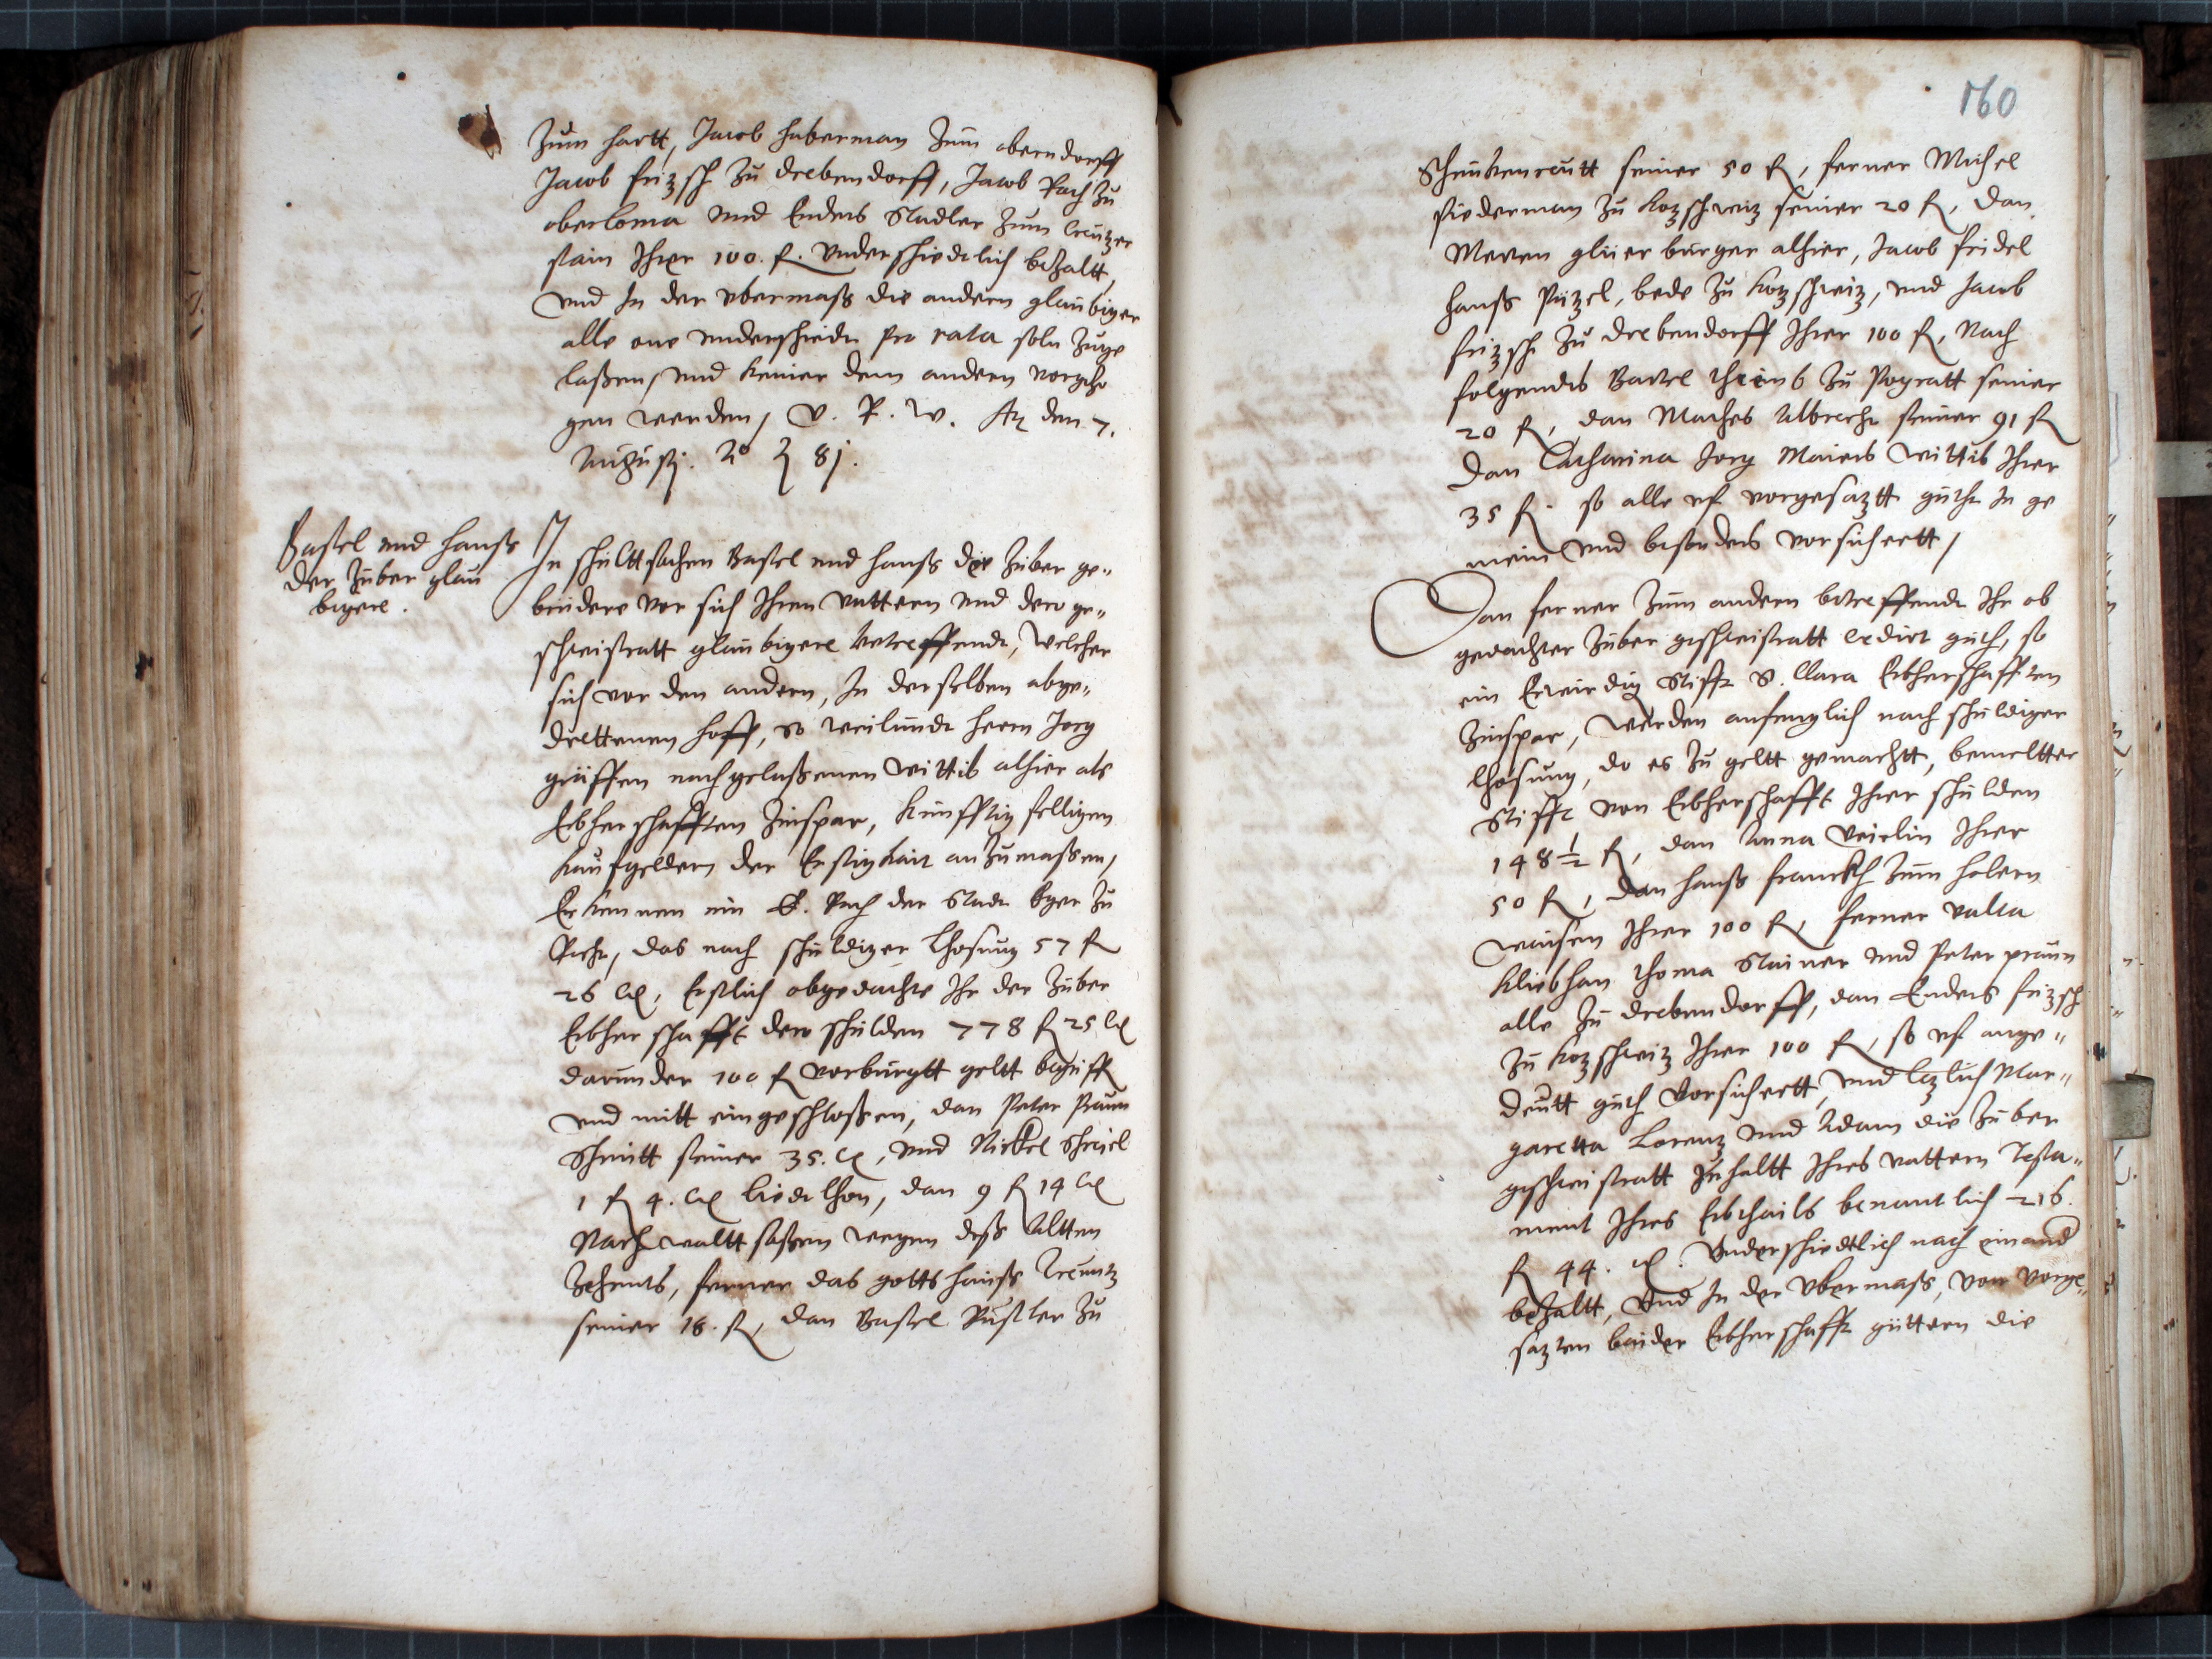 Zum hartt, Jacob Haberman Zum oberndorff
Jacob frizsch Zu drebendorff, Jacob Rach Zu
oberloma vnd Enders Stadler Zum Creutzen
stain Ihrer 100. f. vnderschiedtlich bezaltt
vnd In der vbermaß die andern glaubiger
alle one vnderschiedt pro rata soln Zuge
laßen, vnd keiner dem andern vorgeZo
gen werden, V. R. W. den 7.
Augusti. Aº 81.
Bastel vnd Hanß
der Zuber glau
bigere.
In schultt sachen Bastel vnd Hanß die Zuber ge„
brüdere vor sich Ihren vattern vnd dero ge„
schweistratt glaubigere betreffendt, welcher
sich vor den andern, In derselben abge„
drettenen Hoff, so weilundt Herrn Jorg
gräffen nachgelaßenen wittib alhier als
Erbherschafften Zinspar, künfftig felligen
kaufgeldern der Erstigkait anZumaßen,
Erkennen ein E. Rath der Stadt Eger Zu
Recht, das nach schuldiger Lhosung 57 f
26 , Erstlich obgedachte Ihr der Zuber
Erbherschafft dero schulden 778 f 25
darunder 100 f vorbürgtt geltt begriffn
vnd mitt eingeschloßen, dan Peter Braun
Schmitt seiner 35. , vnd Nickel
1 f 4. liedtlhon, dan 9 f 14
Nach waltt saßen wegen deß Altten
Zehents, ferner das gottshauß Creutz
seiner 16. f, dan Bastel Rustler Zu
160
Schönkenreutt seiner 50 f, ferner Michel
Biederman Zu kozschwiz seiner 20 f, dan
Merten glier burger alhier, Jacob fridel
Hanß Püzel, bede Zu kozschwiz, vnd Jacob
frizsch Zu drebendorff Ihrer 100 f, Nach
folgendts Bartel Zu Pograth seiner
20 f, dan Mathes Albrecht seiner 91 f
dan Catharina Jorg Maiers wittib Ihrer
35 f. so alle vf vorgesaztt guth In ge
mein vnd besonders vorsichertt,
Dan ferner Zum andern betreffendt Ihr ob
gedachter Zuber geschweistratt cedirt guth, so
ein Erwirdig Stifft S. Clara Erbherschafften
Zinspar, werden anfenglich nach schuldiger
Lhosung, do es Zu geltt gemachtt, bemeltter
Stifft von Erbherschafft Ihrer schulden
148 ½ f, dan Anna Ihrer
50 f, dan Hanß franckh Zum Holern
waisen Ihrer 100 f, ferner Valta
Kliebhan Thoma Stainer vnd Peter praun
alle Zu drebendorff, dan Enders frizsch
Zu kozschwiz Ihrer 100 f, so vf ange„
deutt guth vorsichertt, vnd lezlich Mar„
garetta Lorenz vnd Adam die Zuber
geschweistratt Inhaltt Ihres vattern Testa„
ment Ihres Erbthails benantlich 216.
f 44. . Vnderschiedtlich nach einand
bezaltt, Vnd In der Vbermaß, von Vorge„
sazten baider Erbherschafft güttern die